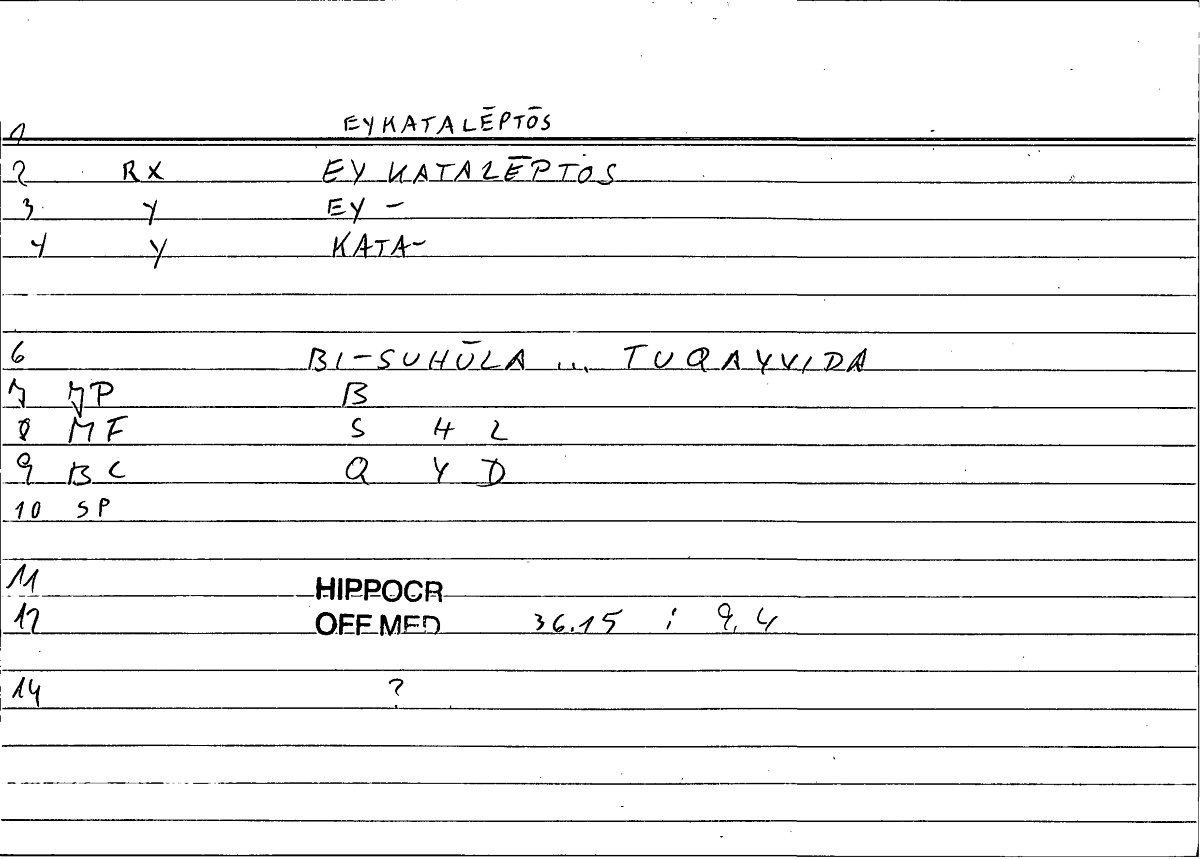 1 EYKATALĒPTŌS
2 RX EY KATALĒPTŌS
3 Y EY -
4 Y KATA-
6 BI-SUHŪLA ... TUQAYYIDA
7 JP B
8 MF S H L
9 BC Q Y D
10 SP
11 HIPPOCR
12 OFF.MED 36.15 ; 9,4
14 ?